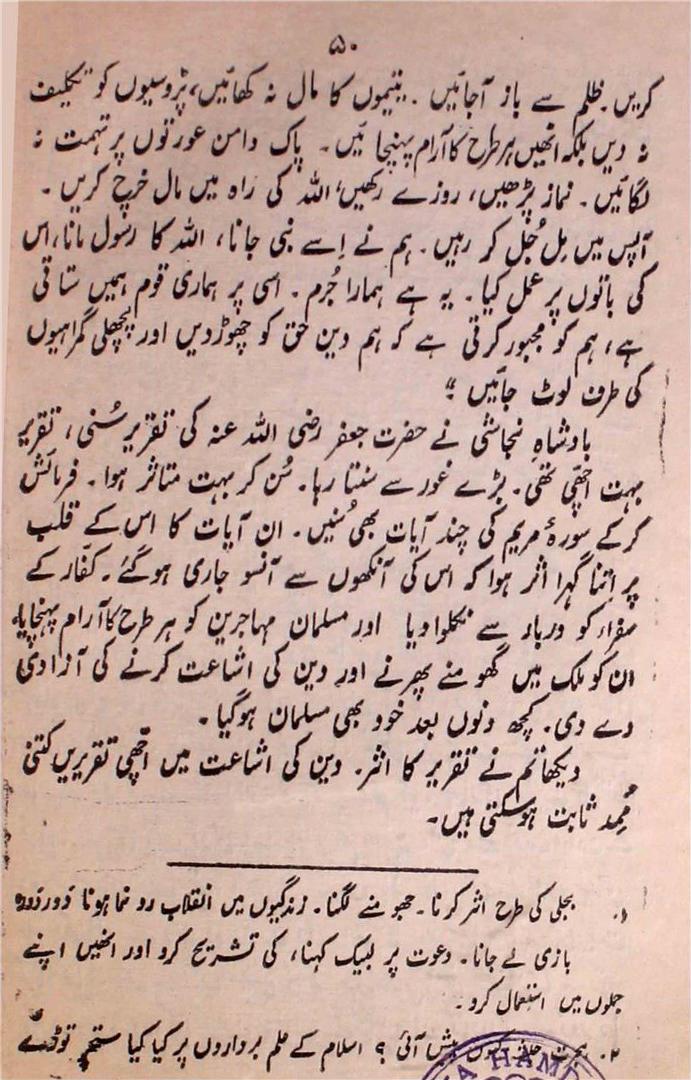 ۵۰
کریں۔ ظلم سے باز آجائیں۔ یتیموں کا مال نہ کھائیں، پڑوسیوں کو تکلیف
نہ دیں بلکہ انھیں ہر طرح کا آرام پہنچائیں۔ پاک دامن عورتوں پر تہمت نہ
لگائیں۔ نماز پڑھیں، روزے رکھیں، اللہ کی راہ میں مال خرچ کریں۔
آپس میں مِل جُل کر رہیں۔ ہم نے اِسے نبی جانا، اللہ کا رسول مانا، اس
کی باتوں پر عمل کیا۔ یہ ہے ہمارا جُرم۔ اسی پر ہماری قوم ہمیں ستاتی
ہے، ہم کو مجبور کرتی ہے کہ ہم دین حق کو چھوڑ دیں اور پچھلی گمراہیوں
کی طرف لوٹ جائیں ؛"
بادشاہِ نجاشی نے حضرت جعفر رضی اللہ عنہ کی تقریر سُنی، تقریر
بہت اچھی تھی۔ بڑے غور سے سنتا رہا۔ سُن کر بہت متاثر ہوا۔ فرمائش
کرکے سورۂ مریم کی چند آیات بھی سُنیں۔ ان آیات کا اس کے قلب
پر اِتنا گہرا اثر ہوا کہ اس کی آنکھوں سے آنسو جاری ہوگئے۔ کفّار کے
سفراء کو دربار سے نکلوا دیا اور مسلمان مہاجرین کو ہر طرح کا آرام پہنچایا،
ان کو ملک میں گھومنے پھرنے اور دین کی اشاعت کرنے کی آزادی
دے دی۔ کچھ دنوں بعد خود بھی مسلمان ہوگیا۔
دیکھا تم نے تقریر کا اثر۔ دین کی اشاعت میں اچھی تقریریں کتنی
مُمِد ثابت ہوسکتی ہیں۔
۱۔ بجلی کی طرح اثر کرنا۔ جھومنے لگنا۔ زندگیوں میں انقلاب رو نما ہونا دَور دَورہ
بازی لے جانا۔ دعوت پر لبیک کہنا، کی تشریح کرو اور انھیں اپنے
جملوں میں استعمال کرو۔
۲۔ ہجرت حبشہ کیوں پیش آئی؟ اسلام کے علم برداروں پر کیا کیا ستم توڑے
HAM